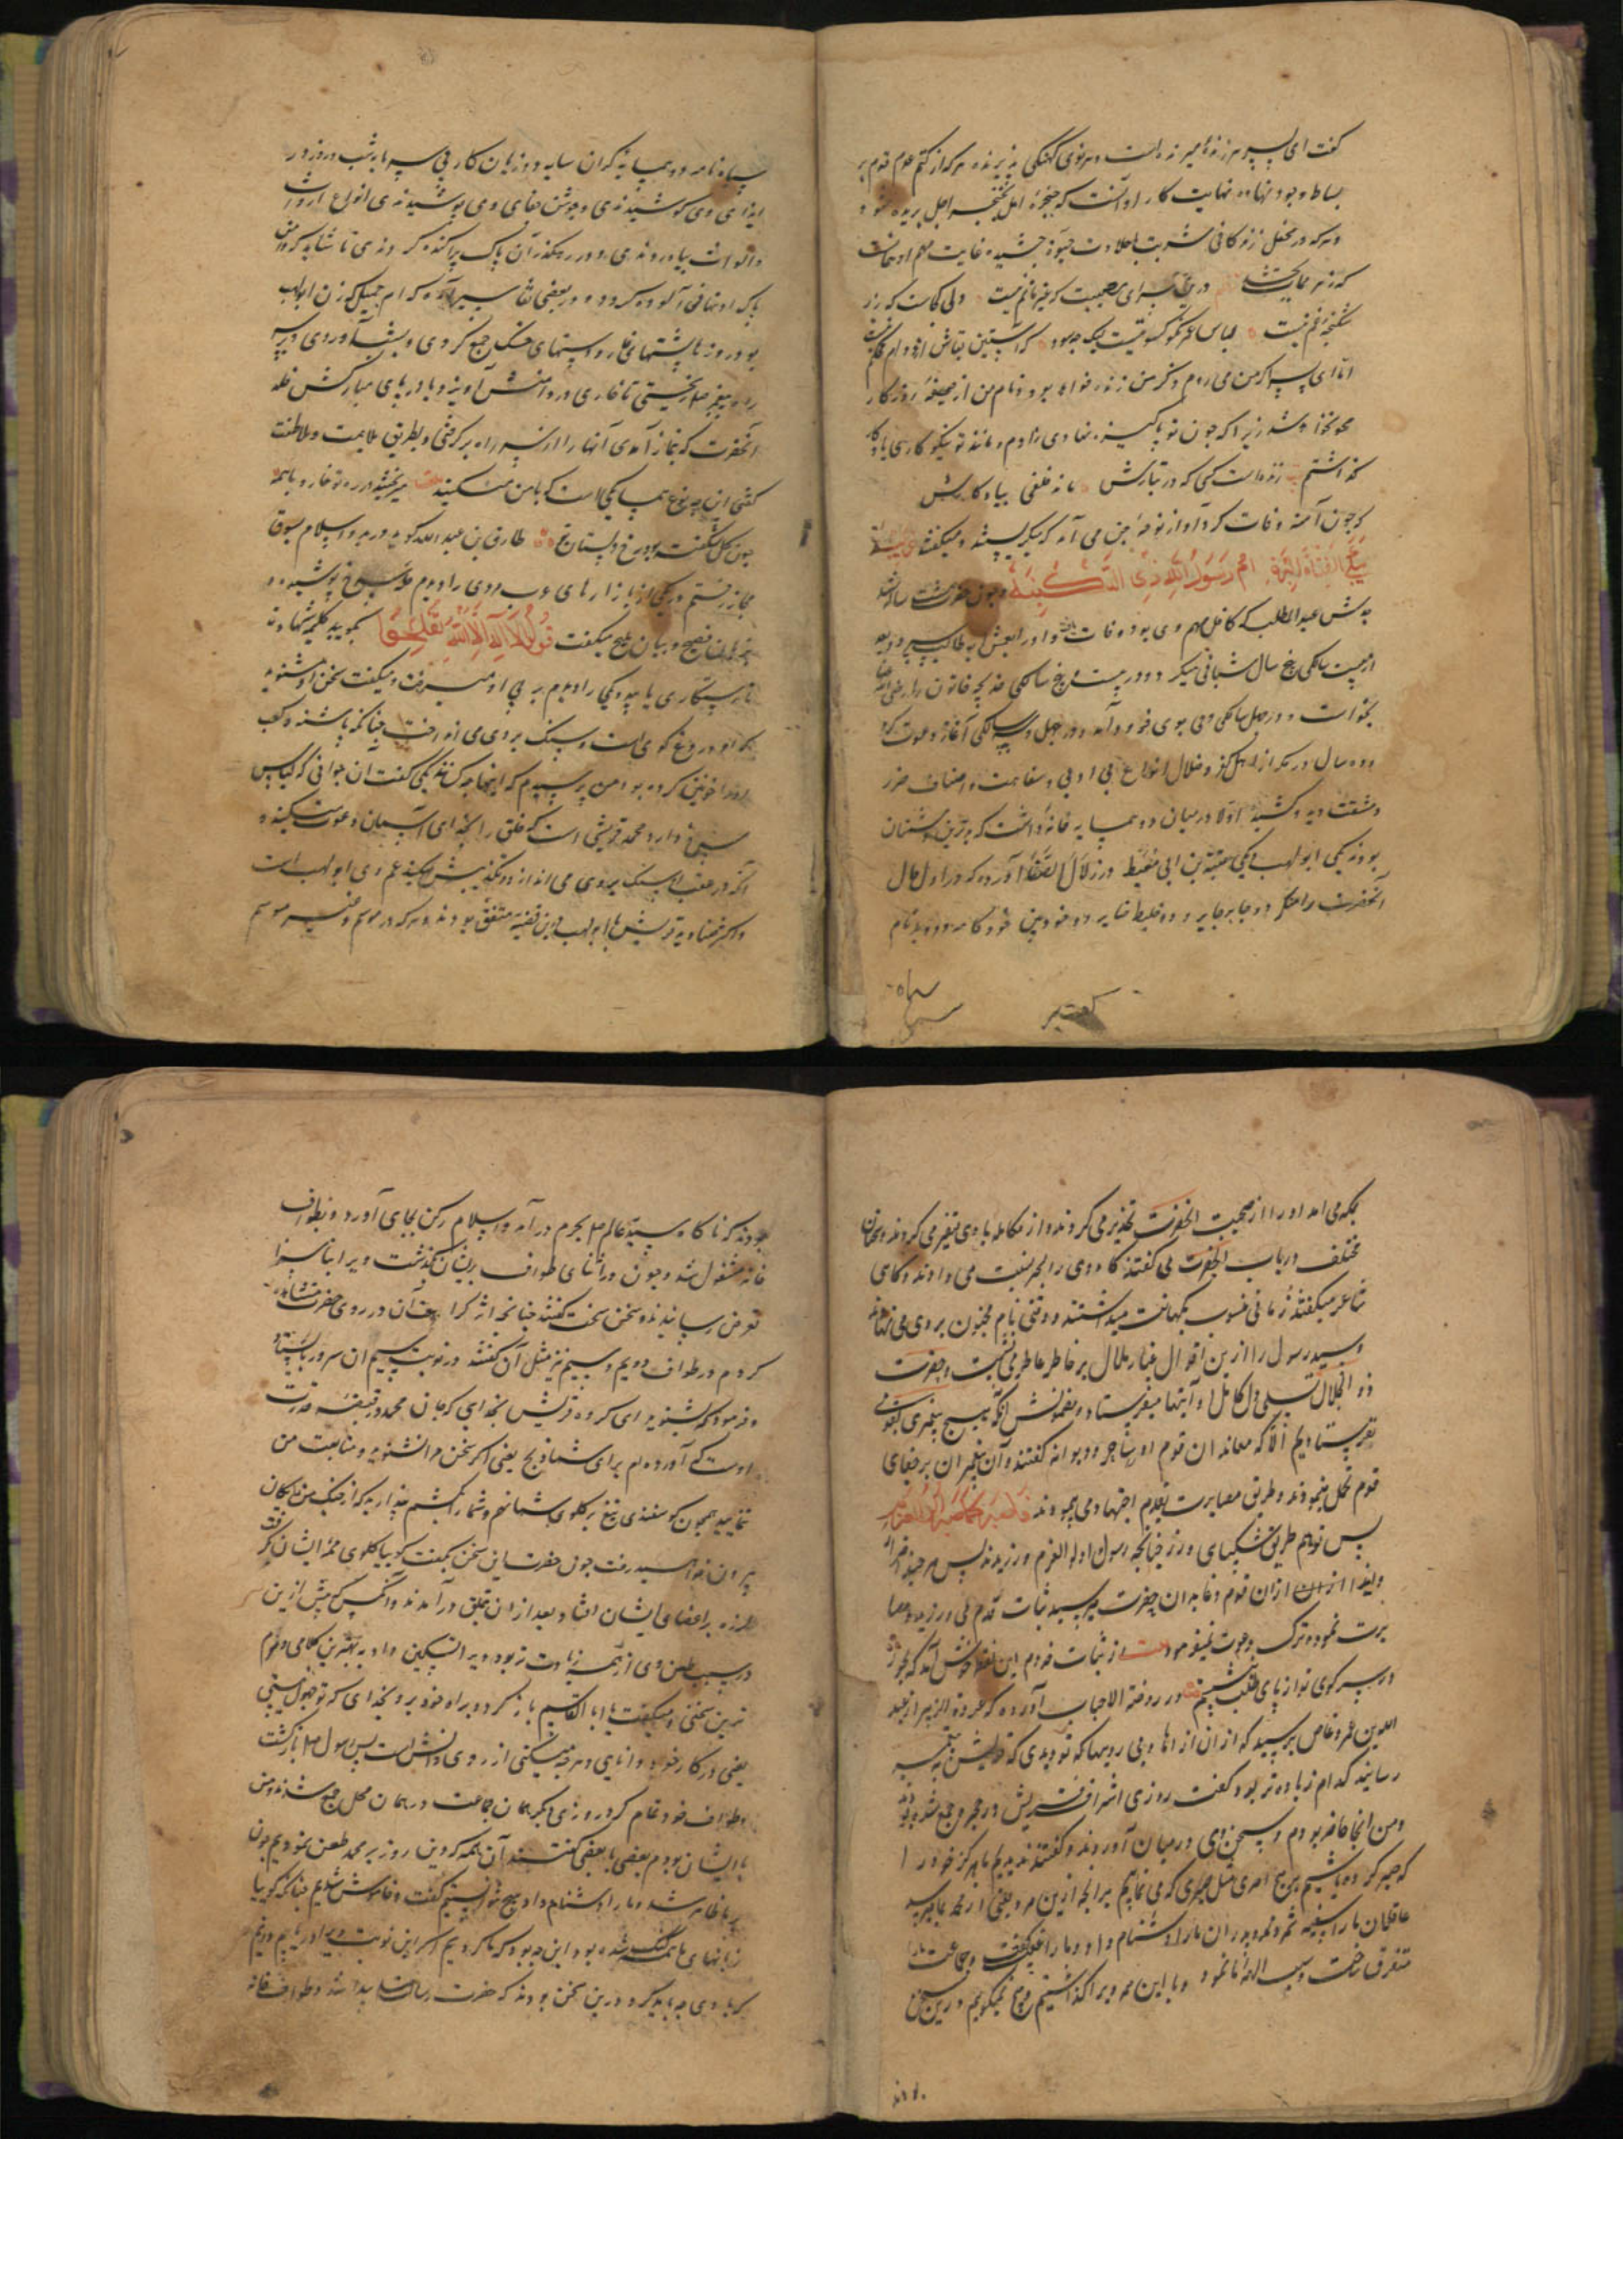 گفت ای پسر هر زندهٔ میرنده است و هر نوی کهنگی پذیرنده هر که از کتم عدم قدم بر
بساط وجود نهاده نهایت کار او آنست که حنجرهٔ امل بخنجر اجل بریده شود
و هر که در محفل زندگانی شربت باحلاوت حیوة چشیده غایت مهم او مماتست
که زهر ممات چشد درین سرای مصیبت که غیر ماتم نیست دلی کجاست که در
شکنجهٔ غم نیست لباس عمر نکو کسوتیست لیک چه سود که آستین بقاش
اما ای پسر اگر من می روم ذکر من زنده خواهد بود و نام من از صحیفهٔ روزگار
محو نخواهد شد زیرا که چون تو پاکیزه نهادی زادم و مانند تو نیکو کاری یادگار
گذاشتم زنده است کسی که در تبارش ماند خلفی بیادگارش
که چون آمنه وفات کرد آواز نوحهٔ جن می آمد که میگریستند و میگفتند
نبکی الفتاة البرة ام رسول الله ذی السکینة و چون حضرت هشت ساله شد
جدش عبدالمطلب که کافل مهم وی بود وفات یافت و او را بعمش ابو طالب سپرد و بعد
از بیست سالگی پنج سال شبانی میکرد و در بیست و پنج سالگی خدیجه خاتون را رضی الله عنها
بخواست و در چهل سالگی وحی بوی فرود آمد و در چهل و سه سالگی آغاز دعوت کرد
و ده سال در مکه از اهل کفر و ضلال انواع بی ادبی و سفاهت و اصناف ضرر
و مشقت دید و کشید اولا در میان دو همسایه خانه داشت که بدترین دشمنان
بودند یکی ابو لهب و یکی عقبة بن ابی معیط در زلال الصفا آورده که در اول حال
آنحضرت را صلعم دو جار جابر و دو خلیط ضایر دو خود بین خود کامه و دو بد نام
سیاه
سیاه نامه دو همسایهٔ گران سایه دو زیان کار بی سرمایه شب و روز در
ایذای وی کوشیدندی و جوشن جفای وی پوشیدندی انواع ارواث
و الواث بیاوردندی و در رهگذر آن پاک پراکنده کردندی تا شاید که دامن
پاک او بدانها آلوده گردد و در بعضی تفاسیر آورده که ام جمیل که زن ابو لهب
بود روزها پشتهای خار و دستهای خسک جمع کردی و بشب آوردی و بر سر
راه پیغمبر صلعم ریختی تا خاری در دامنش آویزد و یا در پای مبارکش خلد
آنحضرت که بنماز آمدی آنها را از سر راه برگرفتی و بطریق ملایمت و ملاطفت
گفتی این چه نوع همسایگی است که با من میکنید میریختند در ره تو خار و با همه
چون گل شگفته بود رخ دلستان تو طارق بن عبدالله گوید در بدو اسلام بسوق
مجاز رفتم در یکی از بازارهای عرب مردی را دیدم حلهٔ سرخ پوشیده و
بزبان فصیح و بیان ملیح میگفت قولوا لا اله الا الله تفلحوا بگویید کلمهٔ شهادت
تا رستگاری یابید و یکی را دیدم در پی او میرفت و میگفت سخن او مشنوید
که او دروغ گوی است و سنگ بر وی می انداخت چنانکه پاشنه و کعب
او را خونین کرده بود من پرسیدم که اینها چه کس اند یکی گفت آن جوانی که لباس
سرخ دارد محمد قریشی است که خلق را بخدای آسمان دعوت میکند و
آنکه در عقب او سنگ بر وی می اندازد و تکذیبش میکند عم وی ابو لهب است
و اکثر صنادید قریش با ابو لهب درین قضیه متفق بودند و هر که در موسم و غیر موسم
بمکه می آمد او را از صحبت آنحضرت تحذیر می کردند و از مکالمه با وی متنفر می کردند و سخنان
مختلف در باب آنحضرت می گفتند گاه وی را بسحر نسبت می دادند و گاهی
شاعر میگفتند زمانی منسوب بکهانت میداشتند و وقتی نام مجنون بر وی می نهادند
و سید رسول را ازین اقوال غبار ملال بر خاطر عاطر می نشست و حضرت
ذو الجلال تسلی دل کامل او آیتها میفرستاد و مضمونش آنکه هیچ پیغمبری بقومی
نفرستادیم الا که معاندان قوم او ساحر و دیوانه گفتند و آن پیغمبران بر جفای
قوم تحمل مینمودند و طریق مصابرت بقدم اجتهاد می پیمودند فاصبر کما صبر اولوا العزم
پس تو هم طریق شکیبایی ورز چنانچه رسول اولو العزم ورزیدند پس هر چند آزار
و ایذا از آن قوم و غایران بحضرت میرسید ثبات قدم می ورزید و مصا
برت نموده ترک دعوت نمیفرمود از ثبات قدم این نکته خوش آمد که بجور
در سر کوی تو از پای طلب ننشستم در روضة الاحباب آورده که عروة الزبیر از عبد
الله بن عمرو عاص پرسید که از آن ازارها و بی رویها که تو دیدی که قریش به پیغمبر
رسانیدند کدام زیاده تر بود گفت روزی اشراف قریش در حجر جمع شدند
و من آنجا حاضر بودم و سخن وی در میان آوردند و گفتند ندیدیم ما هرگز خود را
که صبر کرده باشیم بر هیچ امری مثل صبری که می نماییم بر آنچه ازین مرد یعنی از محمد بما میرسد
عاقلان ما را سفیه شمرد و پدران ما را دشنام داد و ما را عیب گفت و جماعت ما را
متفرق ساخت و سب الههٔ ما نمود و با این همه ویرا گذاشتیم و هیچ نمیگوییم درین سخن
بودند
بودند که ناگاه سید عالم صلعم بحرم در آمد و استلام رکن بجای آورد و بطواف
خانه مشغول شد و چون در اثنای طواف بر ایشان بگذشت ویرا بناسزا
تعرض رسانیدند و سخن سخت گفتند چنانچه اثر کراهت آن در روی حضرت مشاهده
کردم در طواف دویم و سیم نیز مثل آن گفتند در نوبت سیم آن سرور بایستاد
و فرمود که بشنوید ای گروه قریش بخدایی که جان محمد در قبضهٔ قدرت
اوست که آورده ام برای شما ذبح یعنی اگر سخن مرا نشنوید و متابعت من
ننمایید همچون گوسفندی تیغ بر گلوی شما نهم و شما را بکشم مپندارید که از چنگ من رایگان
بیرون خواهید رفت چون حضرت این سخن بگفت گوییا گلوی همهٔ ایشان گرفت
لرزه بر اعضای ایشان افتاد بعد از آن بتملق در آمدند و آنکس که پیش ازین
در سب و طعن وی از همه زیادت تر بود ویرا تسکین داد به بهترین کلامی و نرم
ترین سخنی و میگفت یا ابا القاسم باز گرد و براه خود برو بخدای که تو جهول نیستی
یعنی در کار خود دانایی و هر چه میکنی از روی دانش است پس رسول صلعم باز گشت
و طواف خود تمام کرد روزی دیگر همان جماعت در همان محل جمع شدند و من
با ایشان بودم بعضی با بعضی گفتند آن همه که دین روز بر محمد طعن نمودیم چون
بر ما ظاهر شد و ما را دشنام داد هیچ نتوانستیم گفت و خاموش شدیم چنانکه گوییا
زبانهای ما همه گنگ شده بود این چه بود که ما کردیم اگر این نوبت ویرا دریابیم دانیم
که با وی چه باید کرد درین سخن بودند که حضرت رسالت پیدا شد و طواف خانه